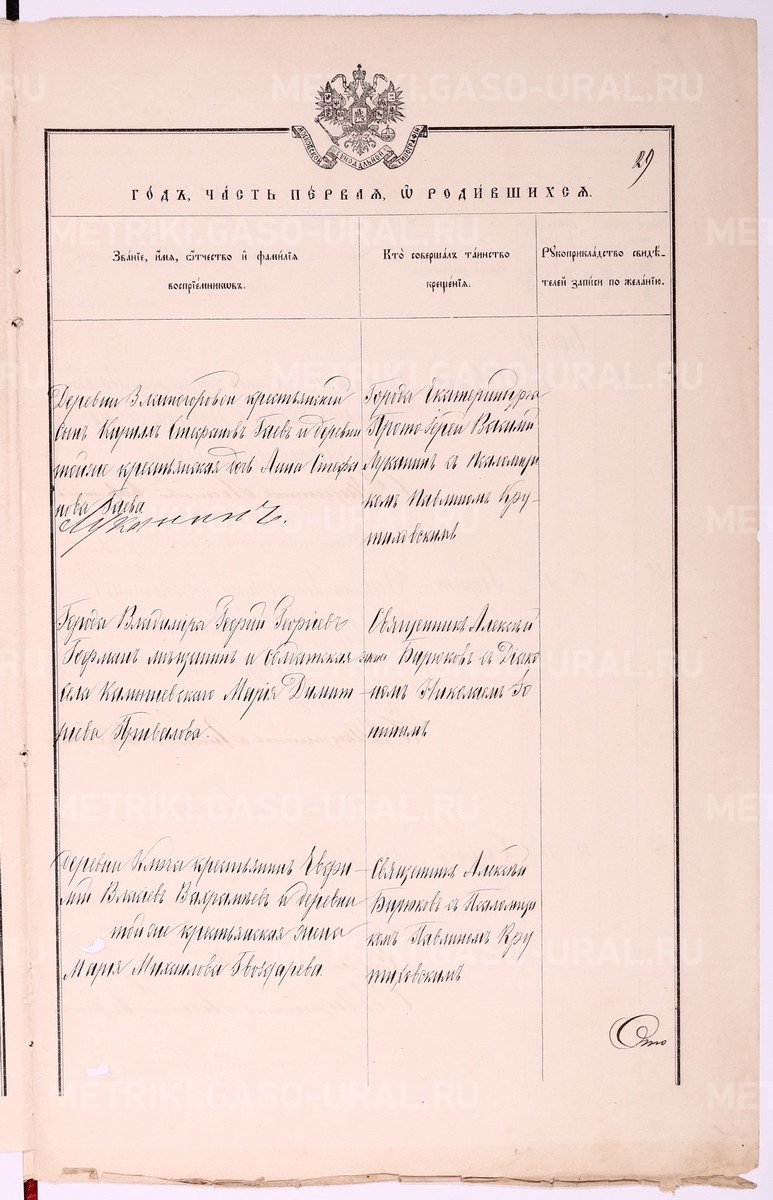 METRIKI.GASO-URAL.RU
МОСКОВСКОЙ СѴНОДАЛЬНОЙ ТИПОГРАФІИ
29
ГОДЪ, ЧАСТЬ ПЕРВАЯ, Ѡ РОДИВШИХСЯ.
Званіе, имя, ѿчество и фамилія
воспріемниковъ.
Кто совершалъ таинство
крещенія.
Рукоприкладство свидѣ-
телей записи по желанію.
Деревни Златогоровой крестьянскій
сынъ Кирилъ Гаевъ и деревни
тойже крестьянская дочь Анна Стефа
нова Гаева
Лукинъ.
Города Екатеринбурга
Протоіерей Василій
съ Псаломщи
комъ Павлиномъ Кру-
тиховскимъ
Города Владиміра Георгій Георгіевъ
Гоерманъ мѣщанинъ и солдатская жена
села Камышевскаго Марія Димит-
ріева Привалова.
Священникъ Алексѣй
Бирюковъ съ Діако
номъ Николаемъ Зо
нинымъ
деревни Ключа крестьянинъ Евфи-
мій Власіевъ Вахрамѣевъ и деревни
той же крестьянская жена
Марія Михаилова Гвоздарева
Священникъ Алексѣй
Бирюковъ съ Псаломщи
комъ Павлиномъ Кру
тиховскимъ